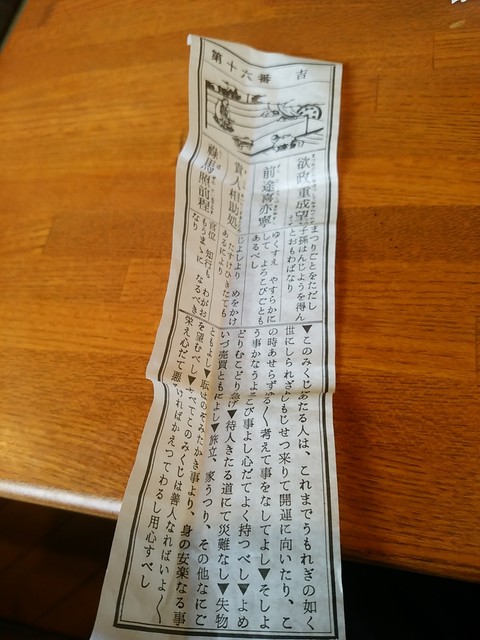 第十六番　吉
欲改重成望
まつりごとをただし
子孫はんじようを得ん
とおもわばなり
前途喜亦寧
ゆくすえ　やすらかに
して　よろこびごとも
あるべし
貴人相助処
じよしより　めをかけ
たすけひきたても
あるにより
禄馬照前程
官位　知行も　わがお
もうまゝに　なるべき
なり
▼このみくじにあたる人は、これまでうもれぎの如く
世にしられざりしもじせつ来りて開運に向いたり、こ
の時あせらずゆる〱考えて事をなしてよし▼そしよ
う事かなうよろこび事よし心だてよく持つべし▼よめ
どりむこどり急げ▼待人きたる道にて災難なし▼失物
いづ売買ともによし▼旅立、家うつり、その他なにご
ともよし▼のぞみたかき事より、身の安楽なる事
を望むべし▼すべてこのみくじは善人なればいよ〱
栄え心だて悪ければかえつてわるし用心すべし